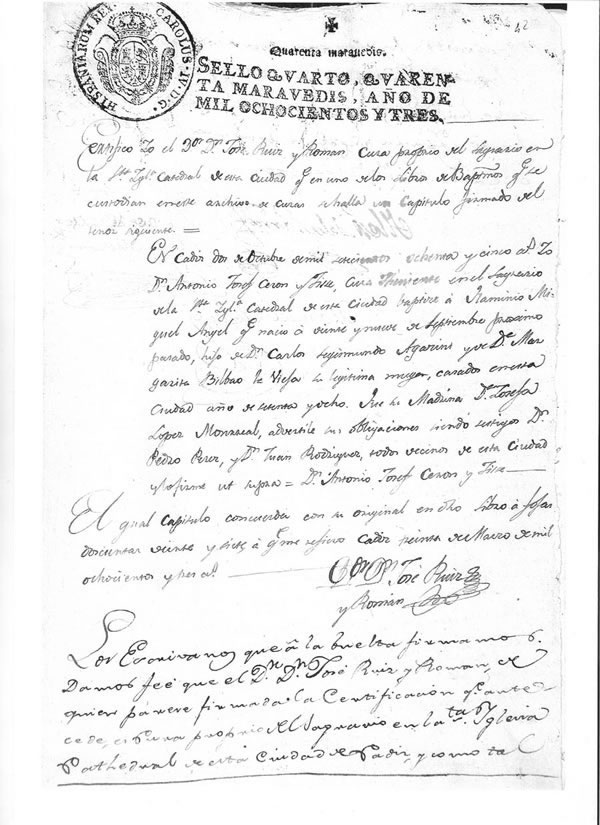 42
HISPANIARUM REX. CAROLUS. IV. D. G.
Quarenta maravedis.
SELLO QVARTO, QVAREN-
TA MARAVEDIS, AÑO DE
MIL OCHOCIENTOS Y TRES.
Certifico Yo el Dor Dn Jose Ruiz y Roman Cura proprio del Sagrario en
la Sta Ygla Catedral de esta Ciudad q en uno de los Libros de Baptmos q se
custodian en este archivo de curas se halla un Capitulo firmado del
tenor siguiente. =
En Cadiz dos de Octubre de mil setecientos ochenta y cinco as. Yo
Dn. Antonio Josef Ceron y Cura Theniente en el Sagrario
de la Sta Ygla Catedral de esta Ciudad baptize à Raminio Mi-
guel Angel q nacio à veinte y nueve de Septiembre proximo
pasado, hijo de Dn Carlos Segimundo Agarini y de Da Mar-
garita Bilbao la Viesa su legitima muger, casados en esta
Ciudad año de setenta y ocho. Fue su Madrina Da Josefa
Lopez Monreal, advertile sus obligaciones siendo testigos Dn
Pedro Perez, y Dn Juan Rodriguez, todos vecinos de esta Ciudad
y lo firme ut supra = Dn Antonio Josef Ceron y
El qual Capitulo concuerda con su original en dho Libro à fojas
doscientas veinte y siete à q me refiero Cadiz treinta de Marzo de mil
ochocientos y tres as.
Dor Dn José Ruiz
y Roman
Los Escrivanos que à la buelta firmamos
Damos feé que el Dr Dn José Ruiz y Roman, de
quien parece firmada la Certificacion q ante-
cede, es Cura proprio del Sagrario en la Sta Yglesia
Cathedral de esta Ciudad de Cadiz, y como tal